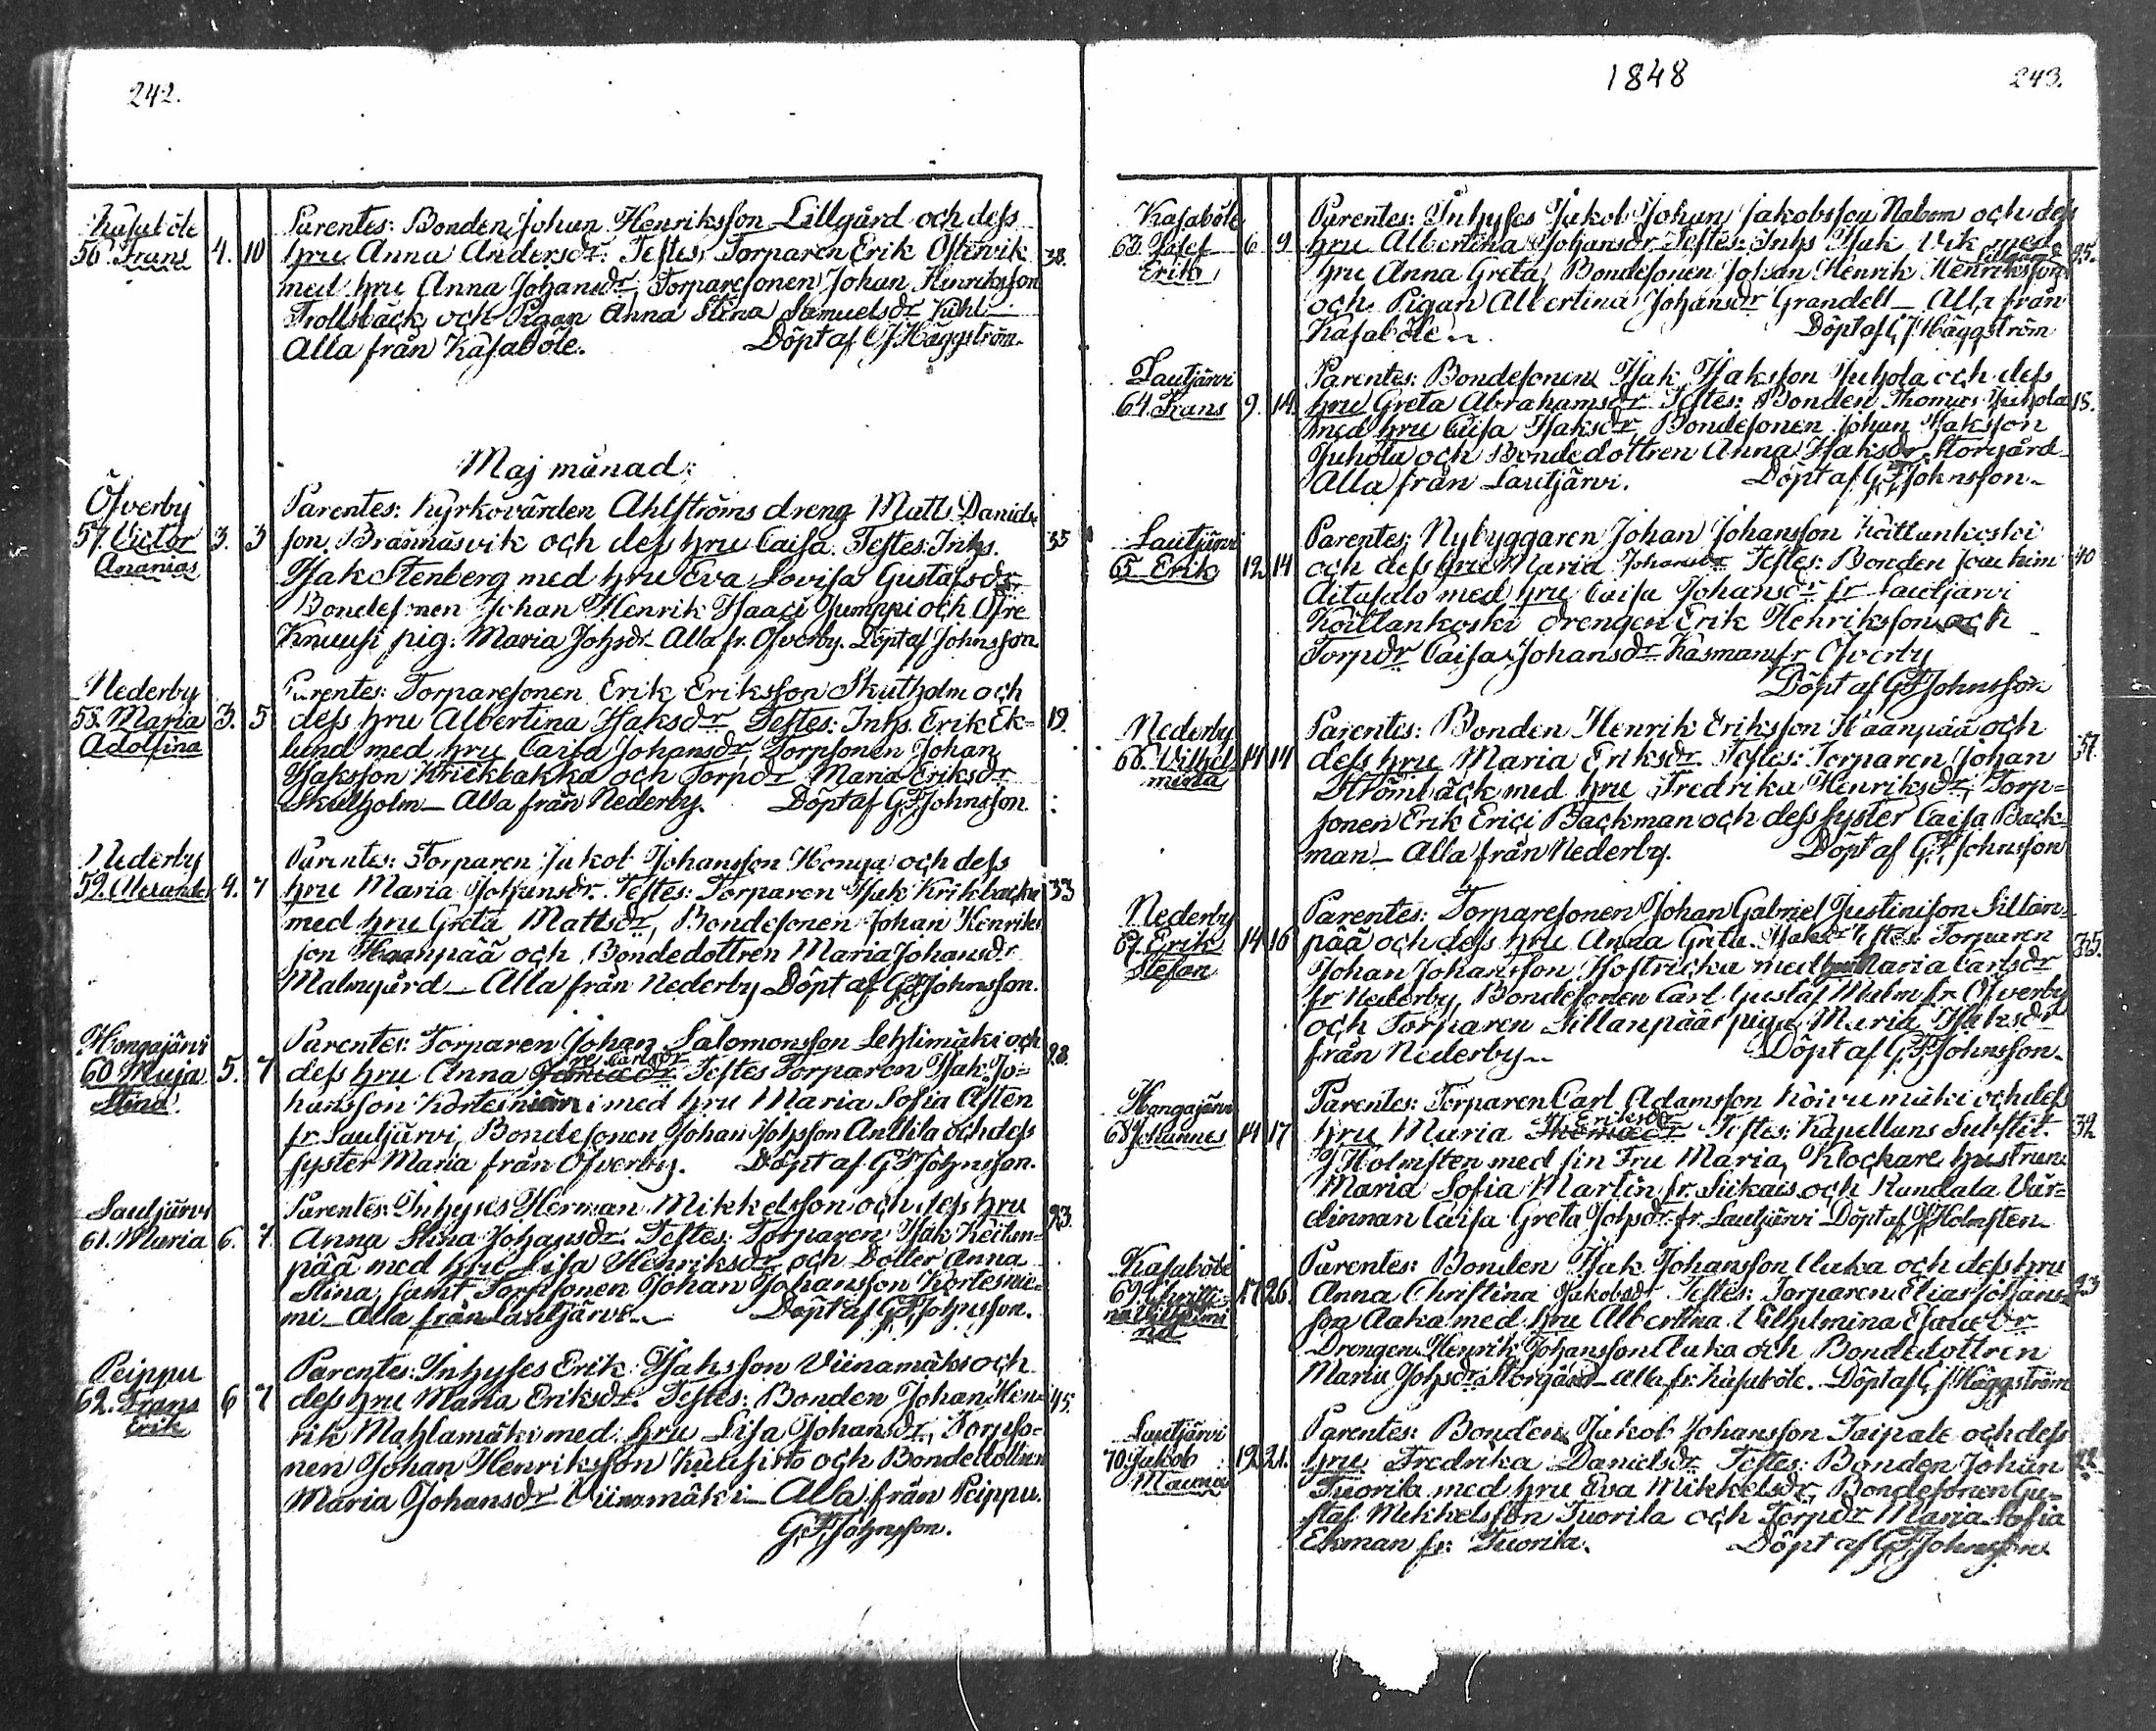 242.
Kasaböle
56. Frans 4. 10
Parentes: Bonden Johan Henriksson Lillgård och dess
hru Anna Andersdr. Testes: Torparen Erik Ostenvik 38.
med hru Anna Johansdr, Torparesonen Johan Henriksson
Trollsbäck och Pigan Anna Stina Samuelsdr
Alla från Kasaböle. Döpt af C J Häggström.
Maj månad:
Öfverby
57. Victor 3. 3
Ananias
Parentes: Kyrkovärden Ahlströms dreng Matts Daniels
son Brännäsvik och dess hru Caisa. Testes: Inhs. 35
Isak Stenberg med hru Eva Lovisa Gustafsdr
Bondesonen Johan Henrik Isaaci Jumppi och Öfre
Knuusi pig. Maria Johsdr. Alla fr. Öfverby. Döpt af Johnsson.
Nederby
58. Maria 3. 5
Adolfina
Parentes: Torparesonen Erik Eriksson Skutholm och
dess hru Albertina Isaksdr. Testes: Inhs. Erik Ek- 19.
lund med hru Caisa Johansdr, Torpsonen Johan
Isaksson Krickbakka och Torpdr Maria Eriksdr
Skutholm — Alla från Nederby. Döpt af G F Johnsson.
Nederby
59. Alexander 4. 7
Parentes: Torparen Jakob Johansson Honga och dess
hru Maria Johansdr. Testes: Torparen Isak Krikbacka 33
med hru Greta Mattsdr, Bondesonen Johan Henriks
son Haanpää och Bondedottren Maria Johansdr
Malmgård — Alla från Nederby Döpt af G F Johnsson.
Hongajärvi
60. Maja 5. 7
Stina
Parentes: Torparen Johan Salomonsson Lehtimäki och 28.
Carlsdr
dess hru Anna Testes Torparen Isak Jo-
hansson Kortesniemi med hru Maria Sofia Asten
fr. Lautjärvi, Bondesonen Johan Johsson Anttila och dess
syster Maria från Öfverby. Döpt af G F Johnsson.
Lautjärvi
61. Maria 6. 7.
Parentes: Inhyses Herman Mikkelsson och dess hru 23.
Anna Stina Johansdr. Testes: Torparen Isak Keitan-
pää med hru Lisa Henriksdr och Dotter Anna
Stina, samt Torpsonen Johan Johansson Kortesnie-
mi — Alla från Lautjärvi. Döpt af G F Johnsson.
Peippu
62. Frans 6 7
Erik
Parentes: Inhyses Erik Isaksson Viinamäki och
dess hru Maria Eriksdr. Testes: Bonden Johan Hen- 45.
rik Mahlamäki med hru Lisa Johansdr, Torpso-
nen Johan Henriksson Kuusisto och Bondedottren
Maria Johansdr Viinamäki — Alla från Peippu.
G. F. Johnsson.
1848
243.
Kasaböle
63. Josef 6 9
Erik
Parentes: Inhyses Jakob Johan Jakobsson Nabom och dess
hru Albertina Johansdr Testes: Inhs Isak Vik med 25.
Lillgård
hru Anna Greta, Bondesonen Johan Henrik Henriksson
och Pigan Albertina Johansdr Grandell — Alla från
Kasaböle. Döpt af C J Häggström
Lautjärvi
64. Frans 9. 14.
Parentes: Bondesonen Isak Isaksson Juhola och dess
hru Greta Abrahamsdr Testes: Bonden Thomas Juhola 18.
med hru Caisa Isaksdr Bondesonen Johan Isaksson
Juhola och Bondedottren Anna Isaksdr Storgård
Alla från Lautjärvi. Döpt af G F Johnsson.
Lautjärvi
65 Erik 12 14
Parentes: Nybyggaren Johan Johansson Koittankoski
och dess hru Maria Johansdr Testes: Bonden Joachim 40
Aitasalo med hru Caisa Johansdr fr Lautjärvi
Koittankoski drengen Erik Henriksson och
Torpdr Caisa Johansdr Kasman fr Öfverby
Döpt af G F Johnsson
Nederby
66. Vilhel- 14 14
mina
Parentes: Bonden Henrik Eriksson Haanpää och
dess hru Maria Eriksdr Testes: Torparen Johan 37.
Strömbäck med hru Fredrika Henriksdr, Torp-
sonen Erik Erici Backman och dess syster Caisa Back-
man — Alla från Nederby. Döpt af G F Johnsson
Nederby
67. Erik 14 16
Stefan
Parentes: Torparesonen Johan Gabriel Justinisson Sillan-
pää och dess hru Anna Greta Isaksdr Testes: Torparen 35.
Johan Johansson Isostricka med hru Maria Carlsdr
fr Nederby, Bondesonen Carl Gustaf Malm fr. Öfverby
och Torparen Sillanpääs piga Maria Isaksdr
från Nederby — Döpt af G F Johnsson.
Hongajärvi
68 Johannes 14 17
Parentes: Torparen Carl Adamsson Koivumäki och dess
Eriksdr
hru Maria Thomaedr Testes: Kapellans Substit. 32
J Holmsten med sin Fru Maria, Klockare hustrun
Maria Sofia Martin fr. Siikais och Kundala Vär-
dinnan Caisa Greta Johsdr fr. Lautjärvi Döpt af J Holmsten
Kasaböle
69. 17 26.
na Vilhelmi
na
Parentes: Bonden Isak Johansson Uuka och dess hru
Anna Christina Jakobsdr Testes: Torparen Elias Johans- 23
son Aaka med hru Albertina Vilhelmina Esaiaedr
Drengen Henrik Johansson Uuka och Bondedottren
Maria Johsdr Storgård — Alla fr. Kasaböle. Döpt af C J Häggström
Lautjärvi
70. Jakob 19 21.
Maunu
Parentes: Bonden Jakob Johansson Taipale och dess
hru Fredrika Danielsdr Testes: Bonden Johan 22
Tuorila med hru Eva Mikkelsdr, Bondesonen Gu-
staf Mikkelsson Tuorila och Torpdr Maria Sofia
Ekman fr: Tuorila. Döpt af G F Johnsson